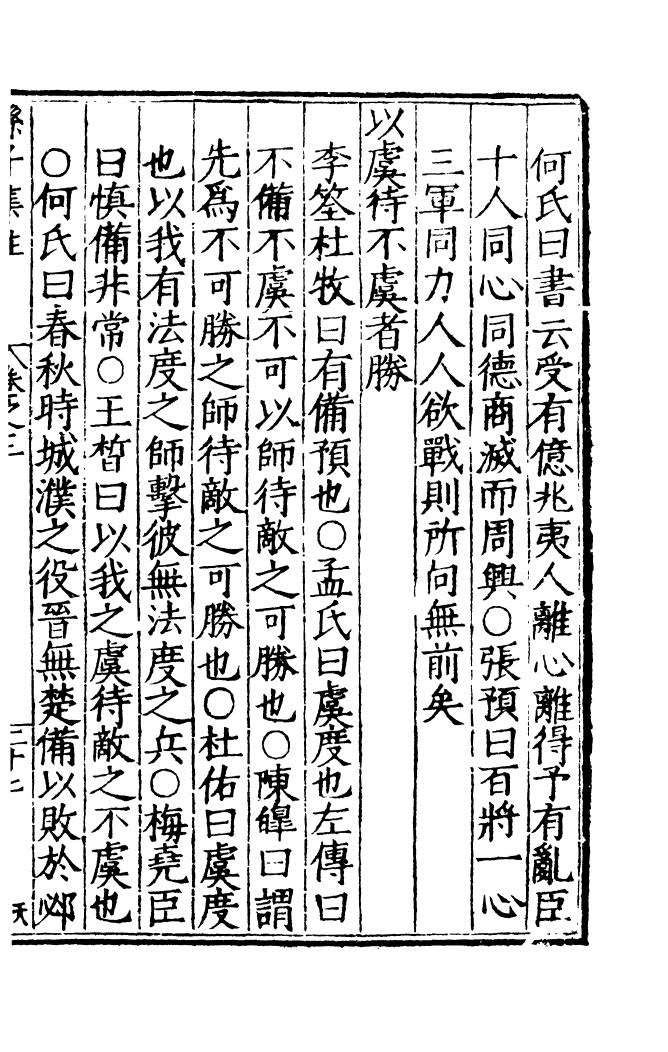 何氏曰書云受有億兆夷人離心離得予有亂臣
十人同心同德商滅而周興○張預曰百將一心
三軍同力人人欲戰則所向無前矣
以虞待不虞者勝
李筌杜牧曰有備預也○孟氏曰虞度也左傳曰
不備不虞不可以師待敵之可勝也○陳皥曰謂
先爲不可勝之師待敵之可勝也○杜佑曰虞度
也以我有法度之師擊彼無法度之兵○梅堯臣
曰慎備非常○王晳曰以我之虞待敵之不虞也
○何氏曰春秋時城濮之役晉無楚備以敗於邲